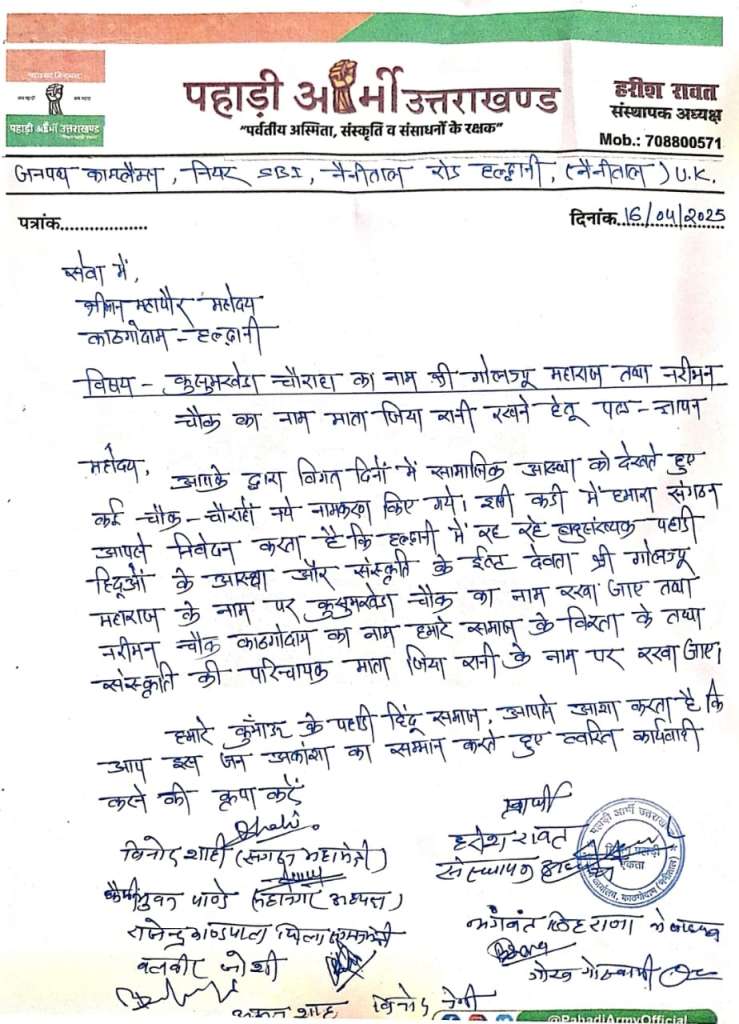 पहाड़ी आर्मी उत्तराखण्ड
"पर्वतीय अस्मिता, संस्कृति व संसाधनों के रक्षक"
पहाड़ी आर्मी उत्तराखण्ड
हरीश रावत
संस्थापक अध्यक्ष
Mob.: 708800571
जनपथ काम्लैक्स, नियर SBI, नैनीताल रोड हल्द्वानी, (नैनीताल) U.K.
पत्रांक..................
दिनांक. 16/04/2025
सेवा में,
श्रीमान महापौर महोदय
काठगोदाम - हल्द्वानी
विषय - कुसुमखेडा चौराहा का नाम श्री गोलज्यू महाराज तथा नरीमन
चौक का नाम माता जिया रानी रखने हेतू पत्र - ज्ञापन
महोदय,
आपके द्वारा विगत दिनों में सामाजिक आस्था को देखते हुए
कई - चौक - चौराहों नये नामकरण किए गये। इसी कडी में हमारा संगठन
आपसे निवेदन करता है कि हल्द्वानी में रह रहे बाहुसंख्यक पहाडी
हिंदूओं के आस्था और संस्कृति के ईष्ट देवता श्री गोलज्यू
महाराज के नाम पर कुसुमखेडा चौक का नाम रखा जाए तथा
नरीमन चौक काठगोदाम का नाम हमारे समाज के विरता के तथा
संस्कृति की परिचायक माता जिया रानी के नाम पर रखा जाए।
हमारे कुँमाऊ के पहाडी हिंदू समाज, आपसे आशा करता है कि
आप इस जन अकांशा का सम्मान करते हुए त्वरित कार्यवाही
करने की कृपा करें
प्रार्थी
हरीश रावत
संस्थापक अध्यक्ष
पहाड़ी आर्मी उत्तराखण्ड
एकता
विनोद शाही (संगठन महामंत्री)
भुवन पाण्डे (महानगर अध्यक्ष)
राजेन्द्र काण्डपाल
भगवंत सिंह राणा
बलवीर जोशी
गोस्वामी
विनोद नेगी
@PahadiArmyOfficial